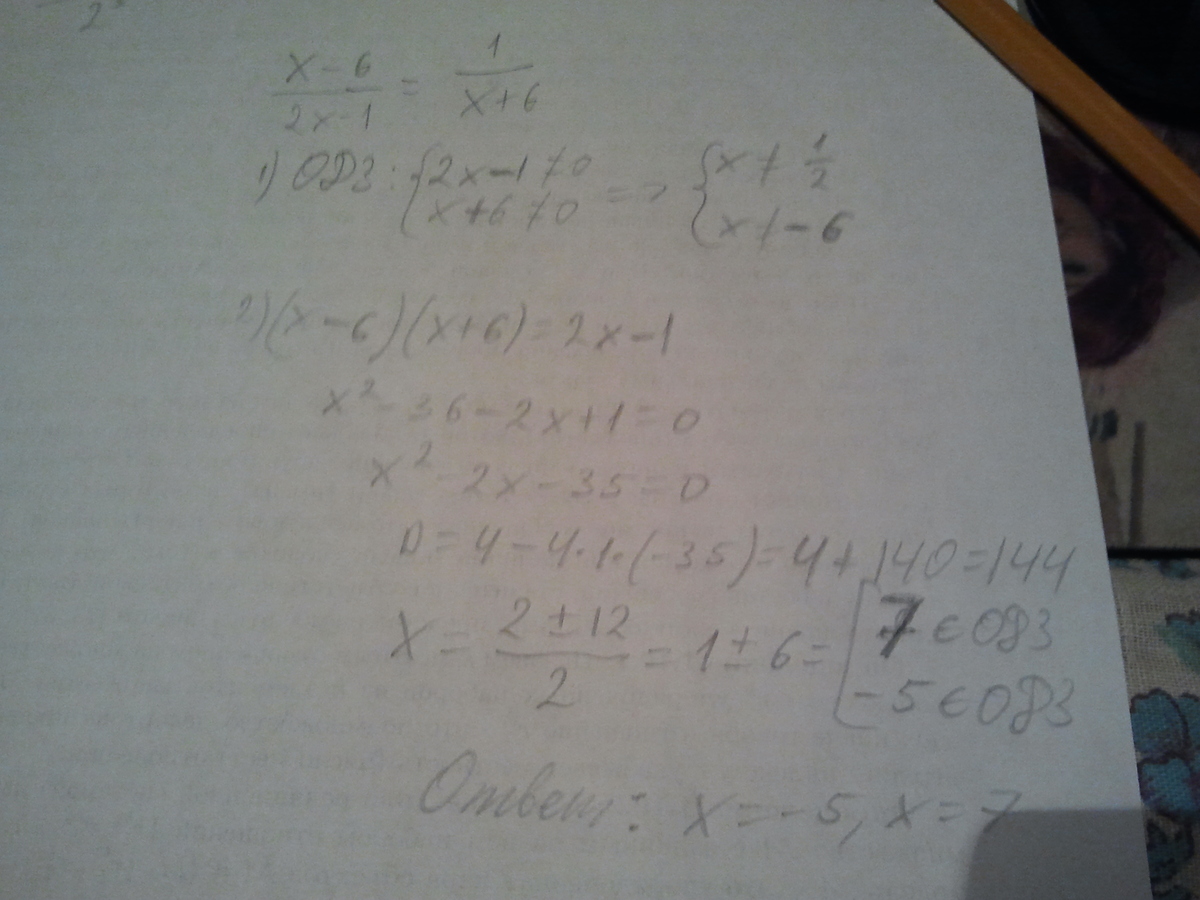 2
x-6/2x-1 = 1/x+6
1) ОДЗ: {2x-1≠0 x+6≠0 => {x≠1/2 x≠-6
2)(x-6)(x+6)=2x-1
x²-36-2x+1=0
x²-2x-35=0
D=4-4·1·(-35)=4+140=144
X = 2±12/2 = 1±6 = [7 ∈ ОДЗ -5 ∈ ОДЗ
Ответ: x=-5, x=7